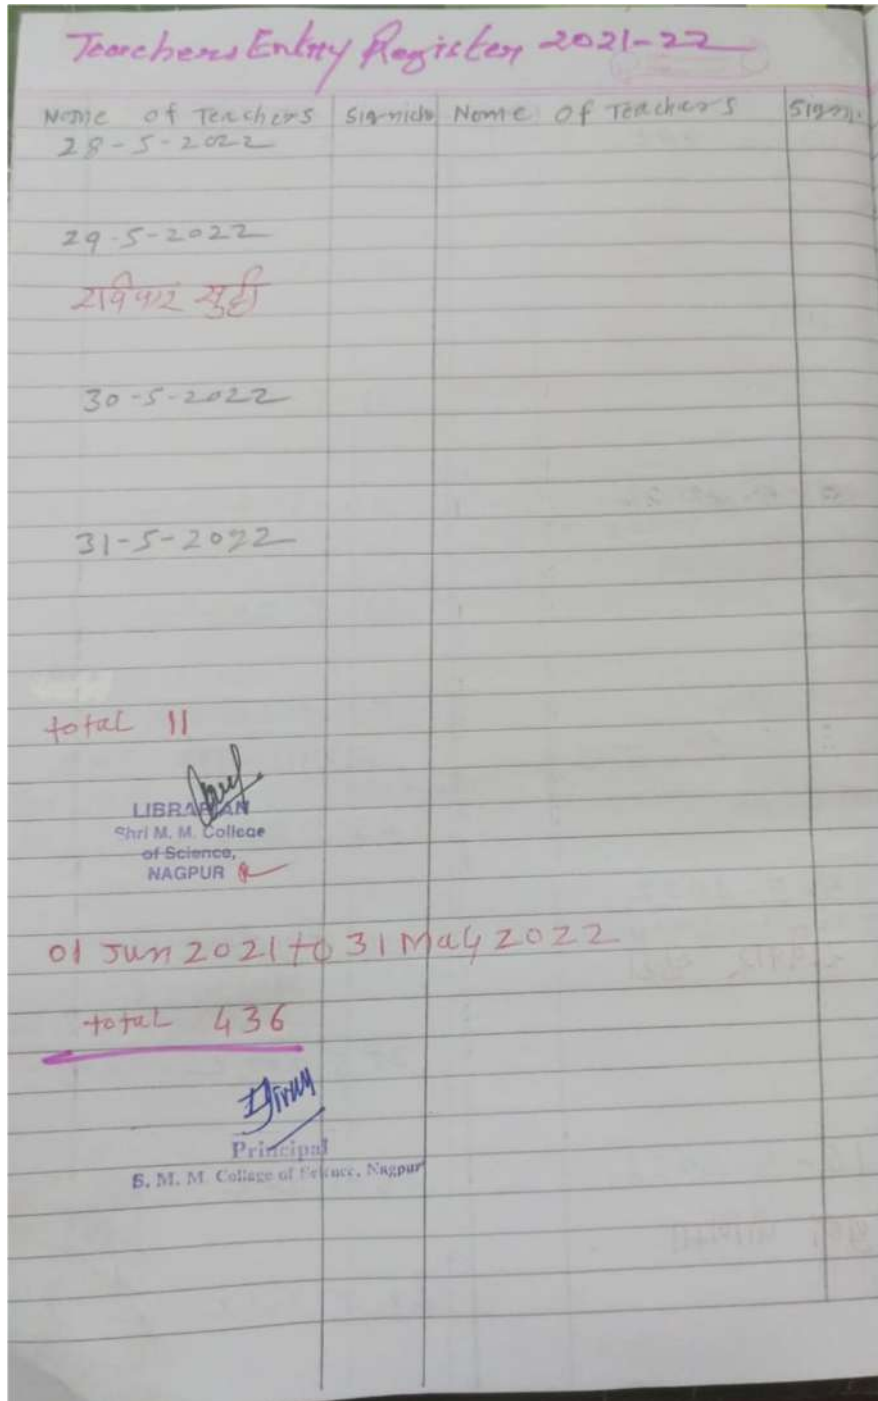 Teachers Entry Register 2021-22
Nome of Teachers Signich Nome of Teachers Sign.
28-5-2022
29-5-2022
रविवार सुट्टी
30-5-2022
31-5-2022
total 11
LIBRARIAN
Shri M. M. College
of Science,
NAGPUR
01 Jun 2021 to 31 May 2022
total 436
Principal
S. M. M. College of Science, Nagpur